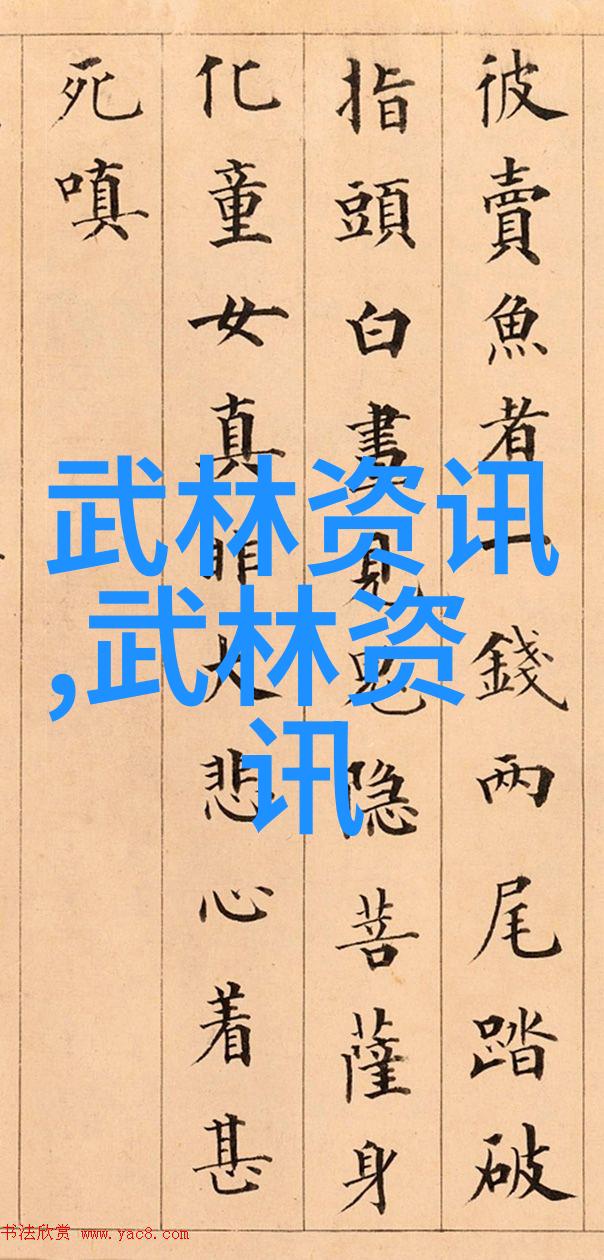 彼賣魚者一錢两尾踏破
指頭白晝見鬼隐菩薩身
化童女真非大悲心着甚
死嗔
武林资讯
,武林资
讯
书法欣赏 www.yac8.com